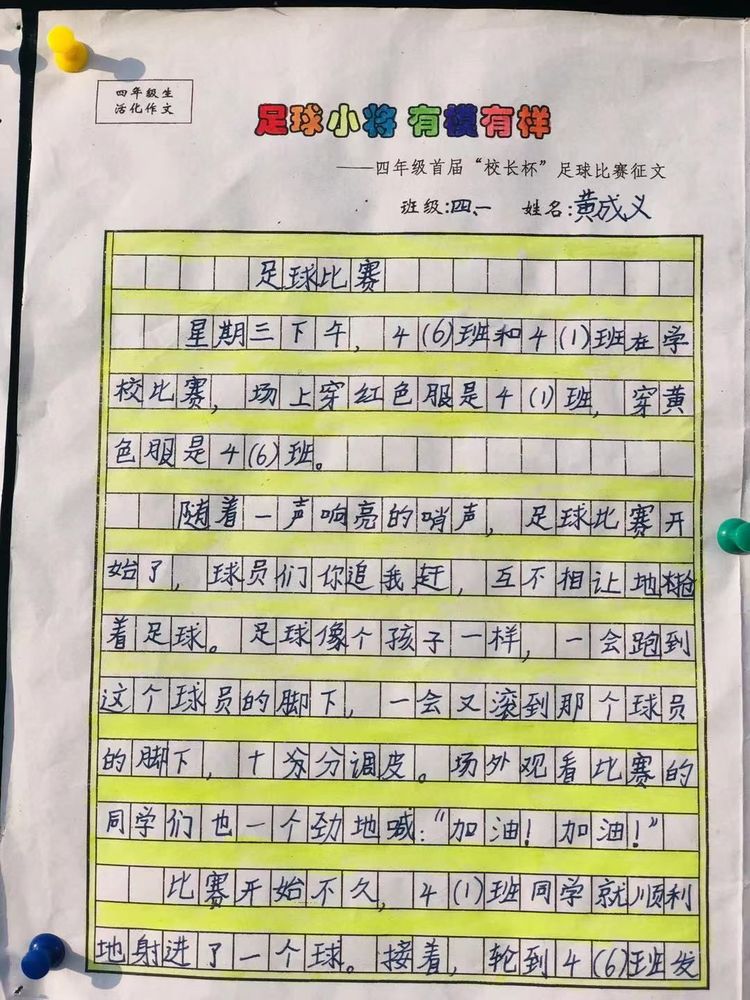 四年级生
活化作文
足球小将 有模有样
——四年级首届“校长杯”足球比赛征文
班级:四、一 姓名:黄成义
足球比赛
星期三下午，4(6)班和4(1)班在学
校比赛，场上穿红色服是4(1)班，穿黄
色服是4(6)班。
随着一声响亮的哨声，足球比赛开
始了，球员们你追我赶，互不相让地抢
着足球。足球像个孩子一样，一会跑到
这个球员的脚下，一会又滚到那个球员
的脚下，十分分调皮。场外观看比赛的
同学们也一个劲地喊:“加油！加油！”
比赛开始不久，4(1)班同学就顺利
地射进了一个球。接着，轮到4(6)班发